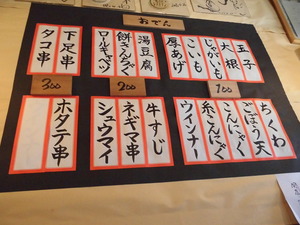 おでん
玉子
大根
じゃがいも
こいも
厚あげ
湯豆腐
餅きんちゃく
ロールキャベツ
下足串
タコ串
100
200
300
ちくわ
ごぼう天
こんにゃく
糸こんにゃく
ウインナー
牛すじ
ネギマ串
シュウマイ
ホタテ串